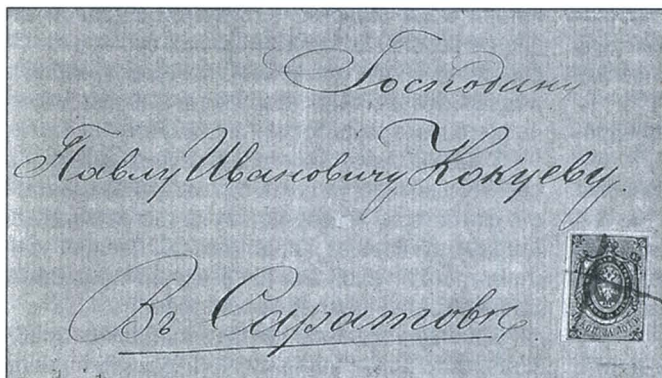 Господину
Павлу Ивановичу Кокуеву.
Въ Саратовѣ